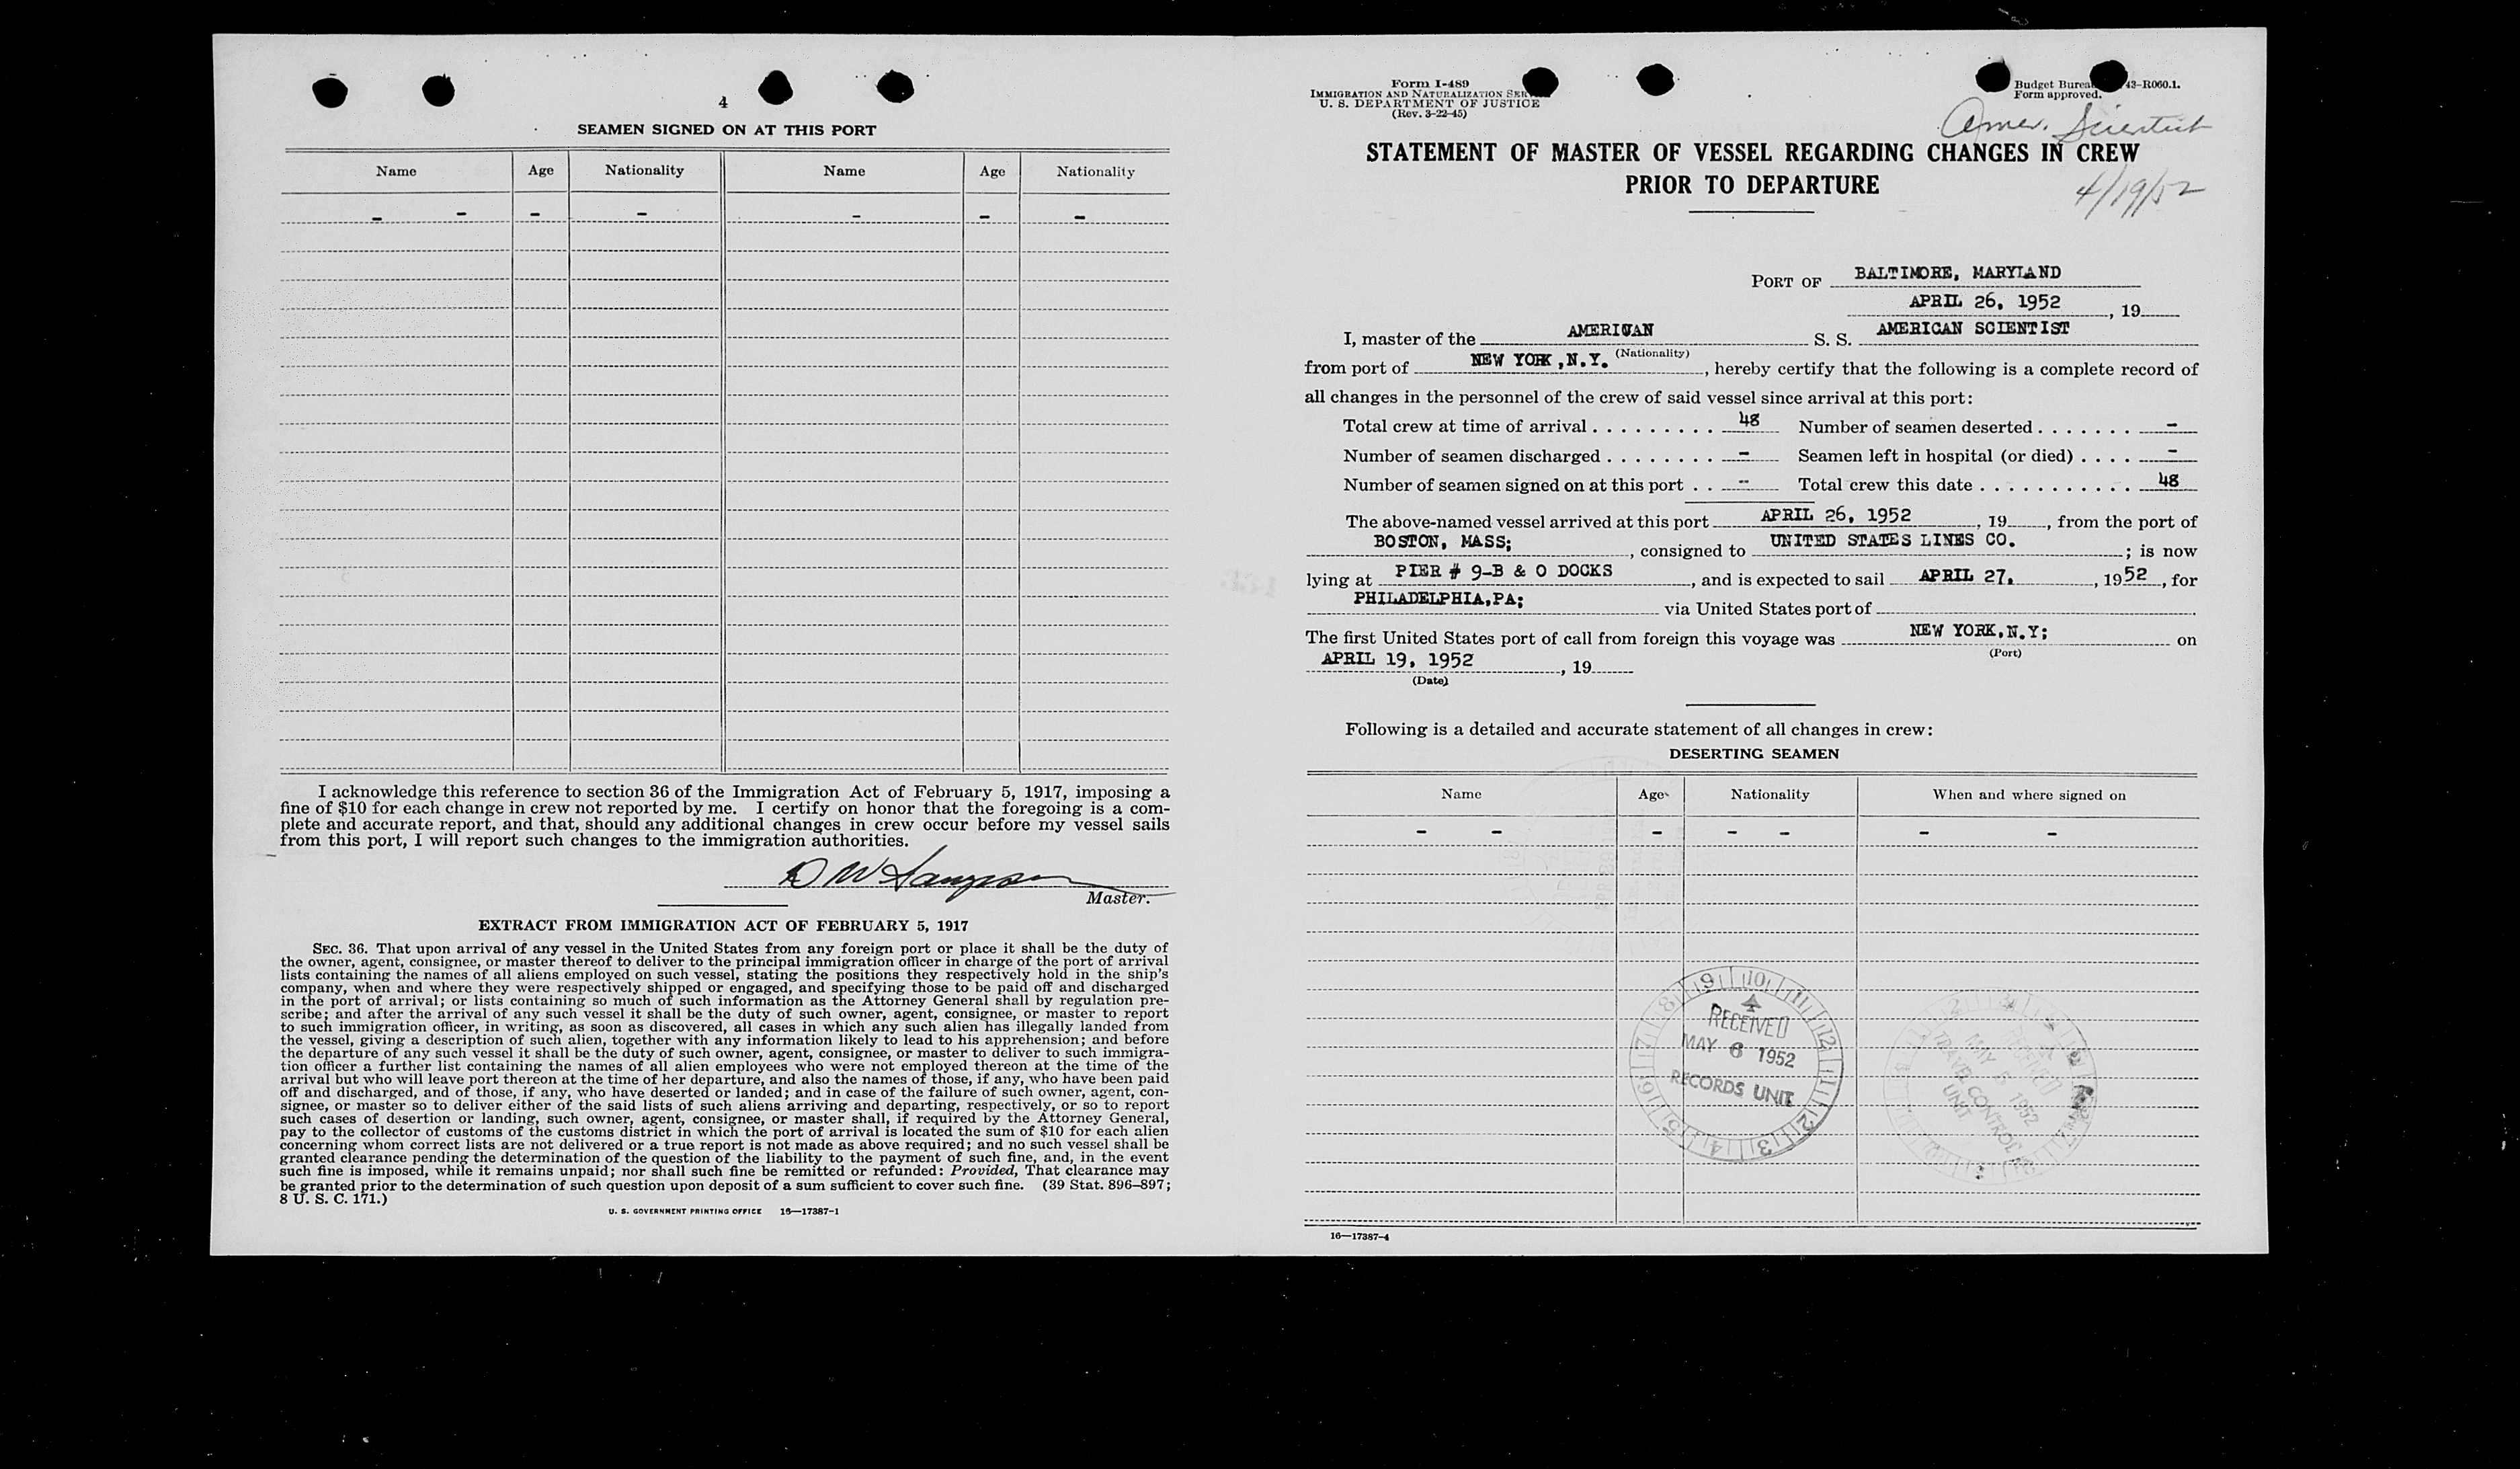 4
SEAMEN SIGNED ON AT THIS PORT
Name Age Nationality Name Age Nationality
- - - - - - -
I acknowledge this reference to section 36 of the Immigration Act of February 5, 1917, imposing a
fine of $10 for each change in crew not reported by me. I certify on honor that the foregoing is a com-
plete and accurate report, and that, should any additional changes in crew occur before my vessel sails
from this port, I will report such changes to the immigration authorities.
D W Sampson
Master.
EXTRACT FROM IMMIGRATION ACT OF FEBRUARY 5, 1917
SEC. 36. That upon arrival of any vessel in the United States from any foreign port or place it shall be the duty of
the owner, agent, consignee, or master thereof to deliver to the principal immigration officer in charge of the port of arrival
lists containing the names of all aliens employed on such vessel, stating the positions they respectively hold in the ship's
company, when and where they were respectively shipped or engaged, and specifying those to be paid off and discharged
in the port of arrival; or lists containing so much of such information as the Attorney General shall by regulation pre-
scribe; and after the arrival of any such vessel it shall be the duty of such owner, agent, consignee, or master to report
to such immigration officer, in writing, as soon as discovered, all cases in which any such alien has illegally landed from
the vessel, giving a description of such alien, together with any information likely to lead to his apprehension; and before
the departure of any such vessel it shall be the duty of such owner, agent, consignee, or master to deliver to such immigra-
tion officer a further list containing the names of all alien employees who were not employed thereon at the time of the
arrival but who will leave port thereon at the time of her departure, and also the names of those, if any, who have been paid
off and discharged, and of those, if any, who have deserted or landed; and in case of the failure of such owner, agent, con-
signee, or master so to deliver either of the said lists of such aliens arriving and departing, respectively, or so to report
such cases of desertion or landing, such owner, agent, consignee, or master shall, if required by the Attorney General,
pay to the collector of customs of the customs district in which the port of arrival is located the sum of $10 for each alien
concerning whom correct lists are not delivered or a true report is not made as above required; and no such vessel shall be
granted clearance pending the determination of the question of the liability to the payment of such fine, and, in the event
such fine is imposed, while it remains unpaid; nor shall such fine be remitted or refunded: Provided, That clearance may
be granted prior to the determination of such question upon deposit of a sum sufficient to cover such fine. (39 Stat. 896–897;
8 U. S. C. 171.)
U. S. GOVERNMENT PRINTING OFFICE 16—17387-1
Form I-489
IMMIGRATION AND NATURALIZATION
U. S. DEPARTMENT OF JUSTICE
(Rev. 3-22-45)
Budget 43-R060.1.
Form approved.
Amer. Scientist
STATEMENT OF MASTER OF VESSEL REGARDING CHANGES IN CREW
PRIOR TO DEPARTURE
4/19/52
PORT OF BALTIMORE, MARYLAND
APRIL 26, 1952, 19
I, master of the AMERICAN S. S. AMERICAN SCIENTIST
(Nationality)
from port of NEW YORK,N.Y., hereby certify that the following is a complete record of
all changes in the personnel of the crew of said vessel since arrival at this port:
Total crew at time of arrival ......... 48 Number of seamen deserted ....... -
Number of seamen discharged ........ - Seamen left in hospital (or died) .... -
Number of seamen signed on at this port .. - Total crew this date ........... 48
The above-named vessel arrived at this port APRIL 26, 1952, 19, from the port of
BOSTON, MASS;, consigned to UNITED STATES LINES CO.; is now
lying at PIER # 9-B & O DOCKS, and is expected to sail APRIL 27., 1952, for
PHILADELPHIA,PA; via United States port of .
The first United States port of call from foreign this voyage was NEW YORK,N.Y; on
(Port)
APRIL 19, 1952, 19
(Date)
Following is a detailed and accurate statement of all changes in crew:
DESERTING SEAMEN
Name Age Nationality When and where signed on
- - - - - - -
9 10 11 12 1 2 3 4 5 6 7 8
RECEIVED
MAY 6 1952
RECORDS UNIT
RECEIVED
MAY 5 1952
TRAVEL CONTROL
UNIT
16—17387-4